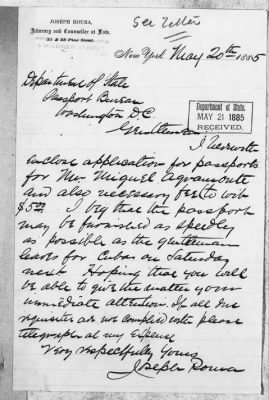 See Letter
JOSEPH ROURA,
Attorney and Counsellor at Law,
31 & 33 Pine Street
New York May 20th 1885
Department of State
Passport Bureau
Washington D.C.
Department of State.
MAY 21 1885
RECEIVED.
Gentlemen
I herewith
enclose application for passports
for Mr Miguel Agramonte
and also necessary fee to wit
$5.00 I beg that the passport
may be furnished as speedily
as possible as the gentleman
leaves for Cuba on Saturday
next Hoping that you will
be able to give the matter your
immediate attention. If all due
requisites are not complied with please
telegraph at my expense
Very respectfully Yours
Joseph Roura